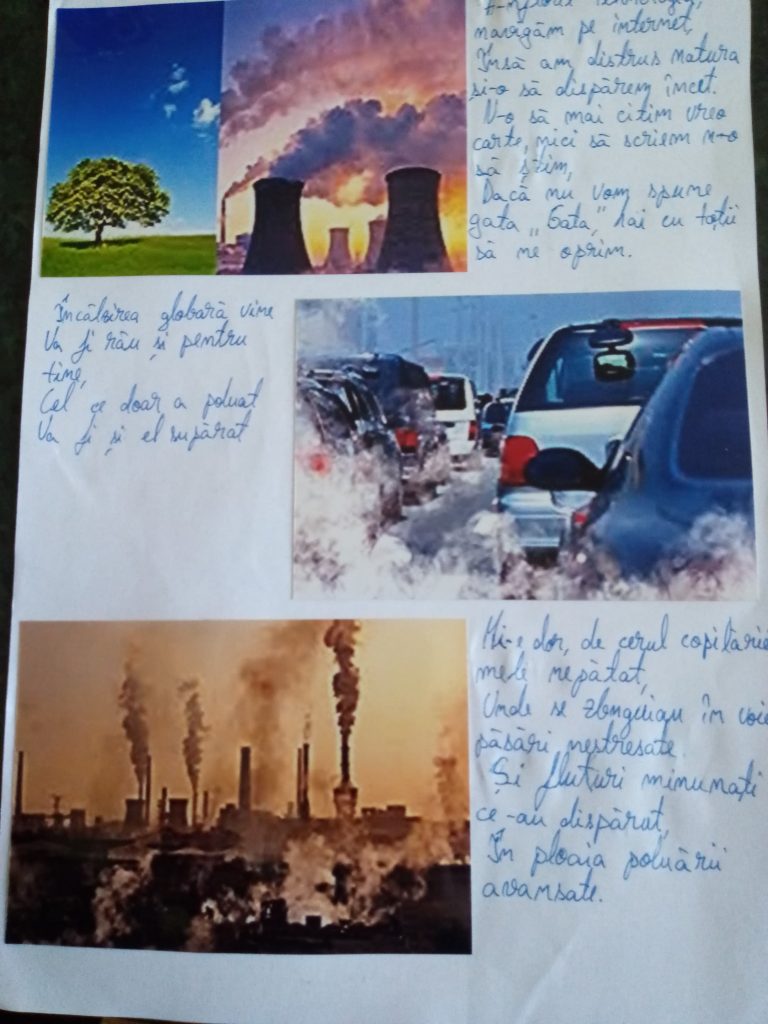 navigăm pe internet,
Însă am distrus natura
și-o să dispărem încet.
N-o să mai citim vreo
carte, nici să scriem n-o
să știm,
Dacă nu vom spune
gata „Gata”, hai cu toții
să ne oprim.
Încălzirea globară vine
Va fi rău și pentru
tine,
Cel ce doar a poluat
Va fi și el supărat
Mi-e dor, de cerul copilăriei
mele nepătat,
Unde se zbenguiau în voie
păsări nestresate.
Și fluturi minunați
ce-au dispărut,
În ploaia poluării
avansate.